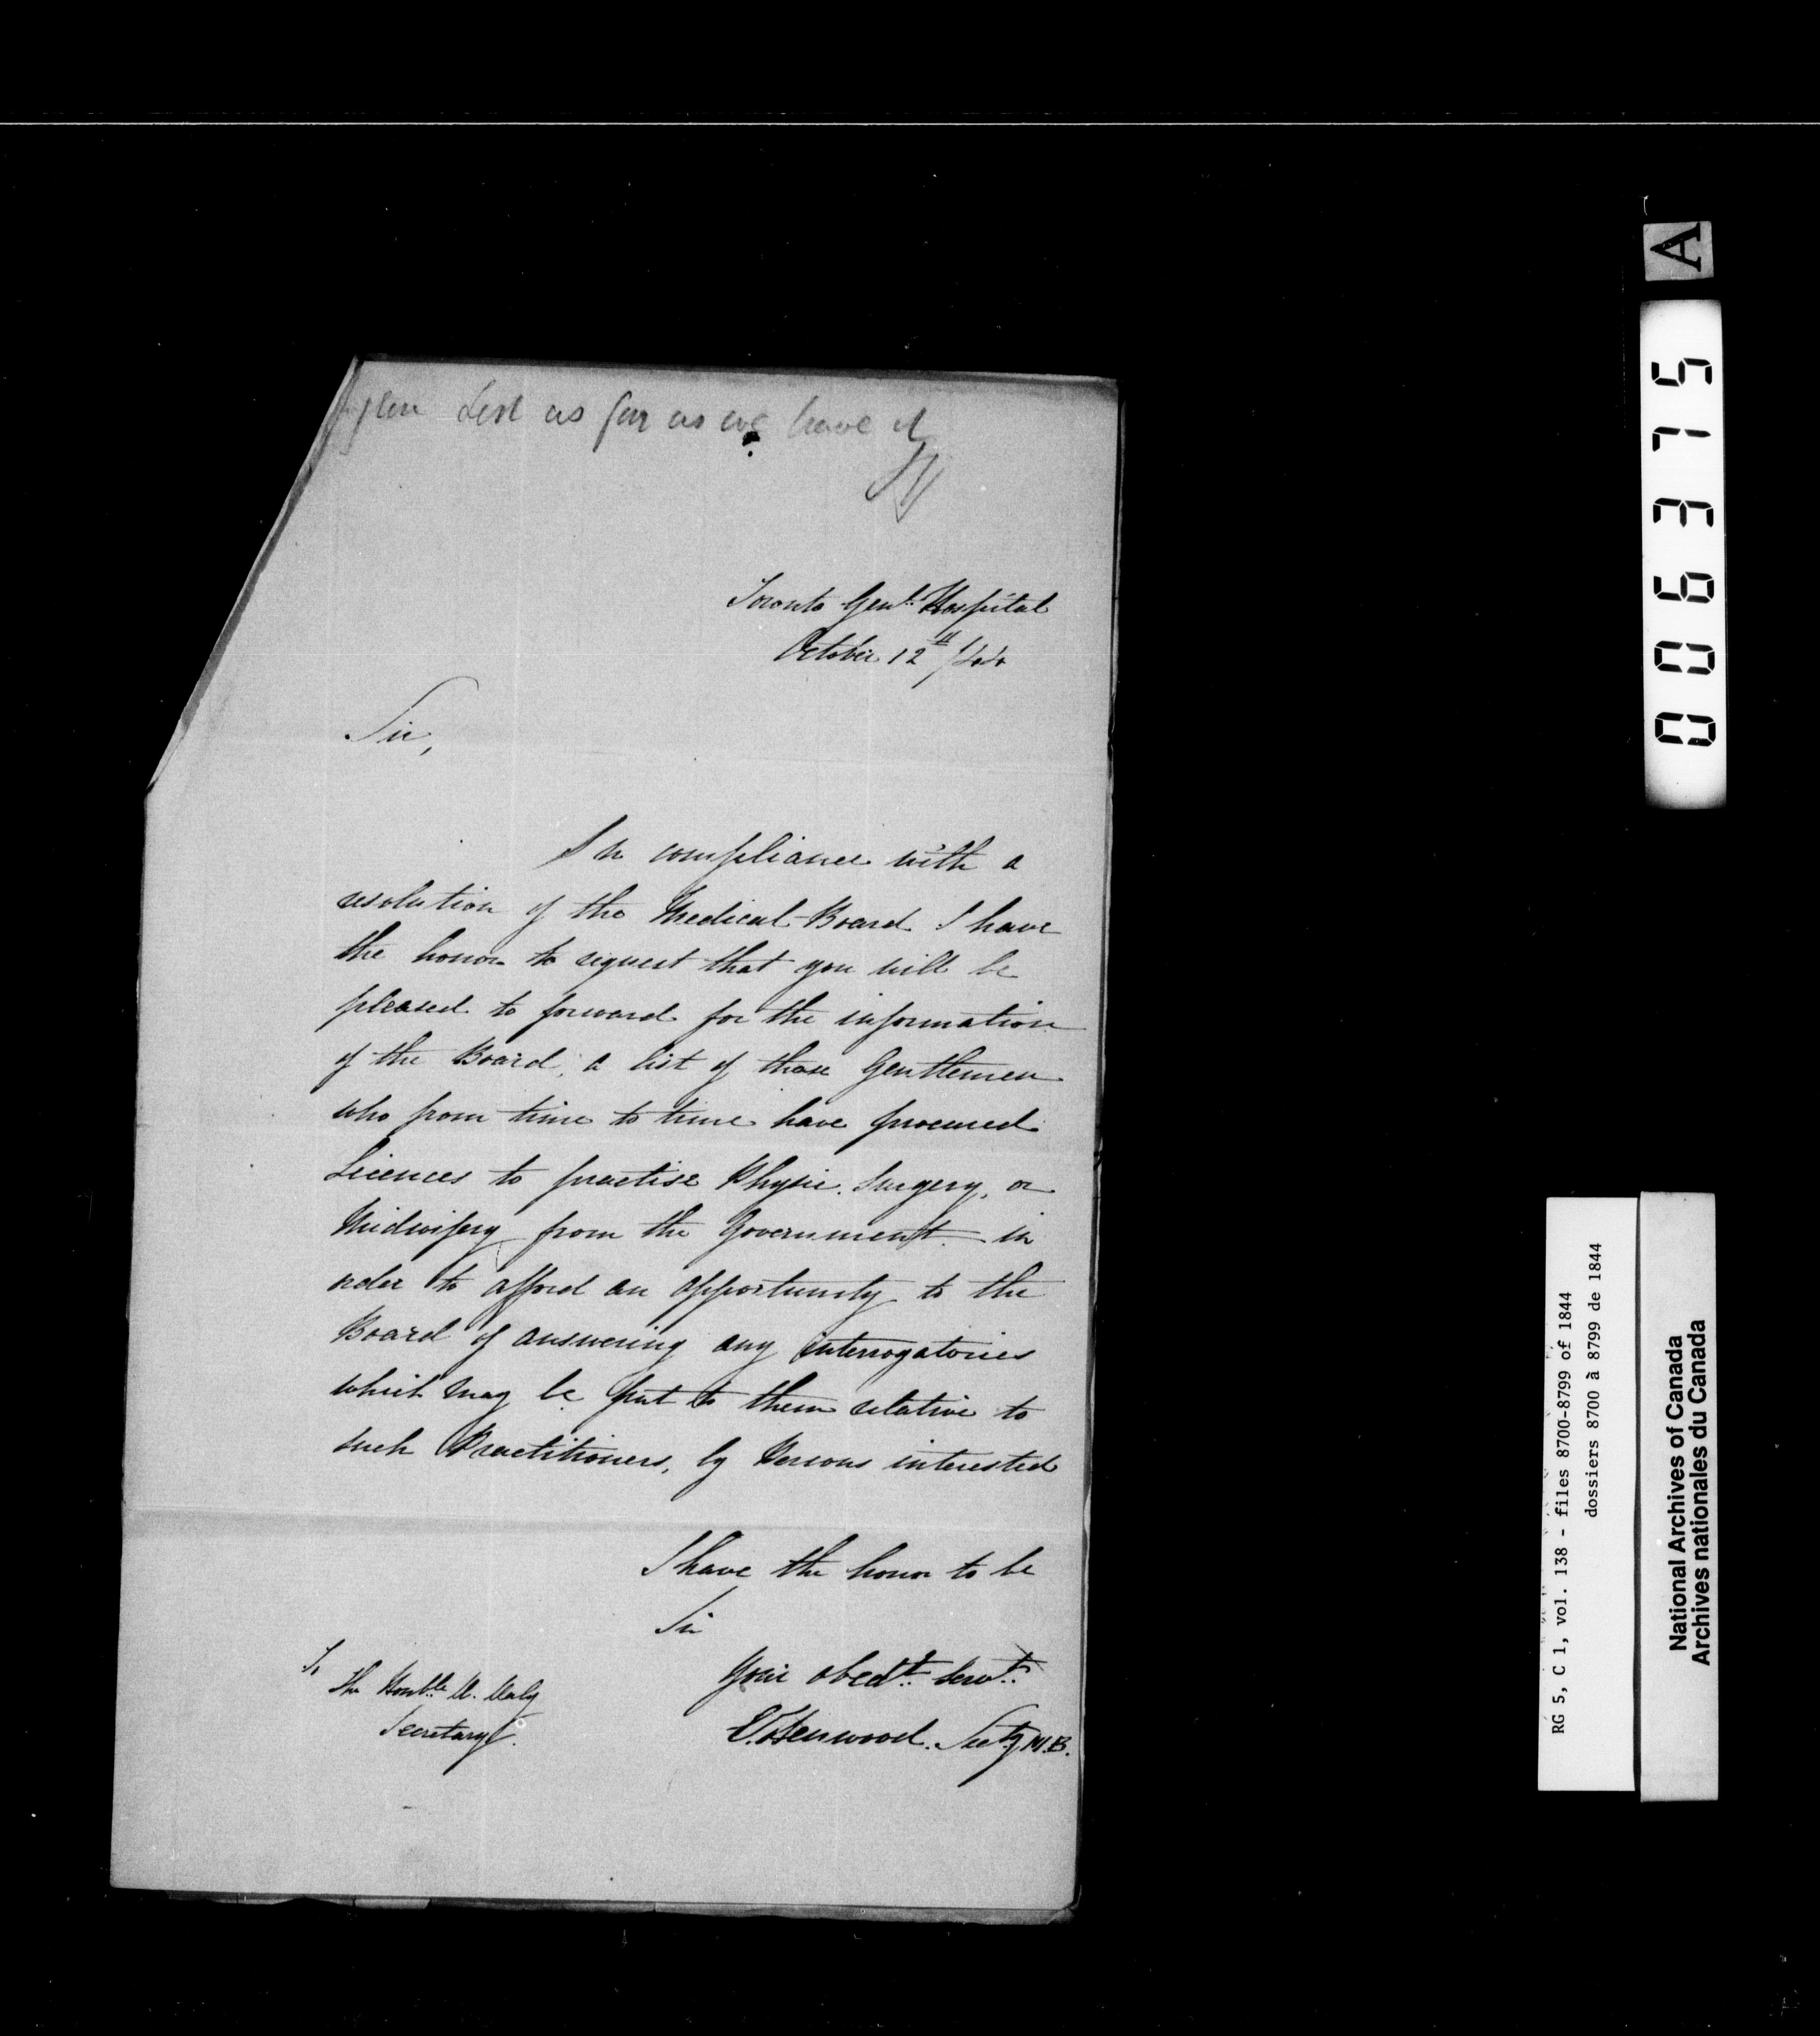 List as far as we have it
Toronto Genl. Hospital
October 12th /44
Sir,
In compliance with a
resolution of the Medical Board I have
the honor to request that you will be
pleased to forward for the information
of the Board, a list of those Gentlemen
who from time to time have procured
Licences to practise Physic, Surgery, or
Midwifery from the Government in
order to afford an opportunity to the
Board of answering any interrogatories
which may be put to them relative to
such Practitioners, by Persons interested
I have the honor to be
Sir
Your obedt. Servt.
E. Henwood. Secty M.B.
To
The Honble. D. Daly
Secretary.
A
006375
RG 5, C 1, vol. 138 - files 8700-8799 of 1844
dossiers 8700 à 8799 de 1844
National Archives of Canada
Archives nationales du Canada